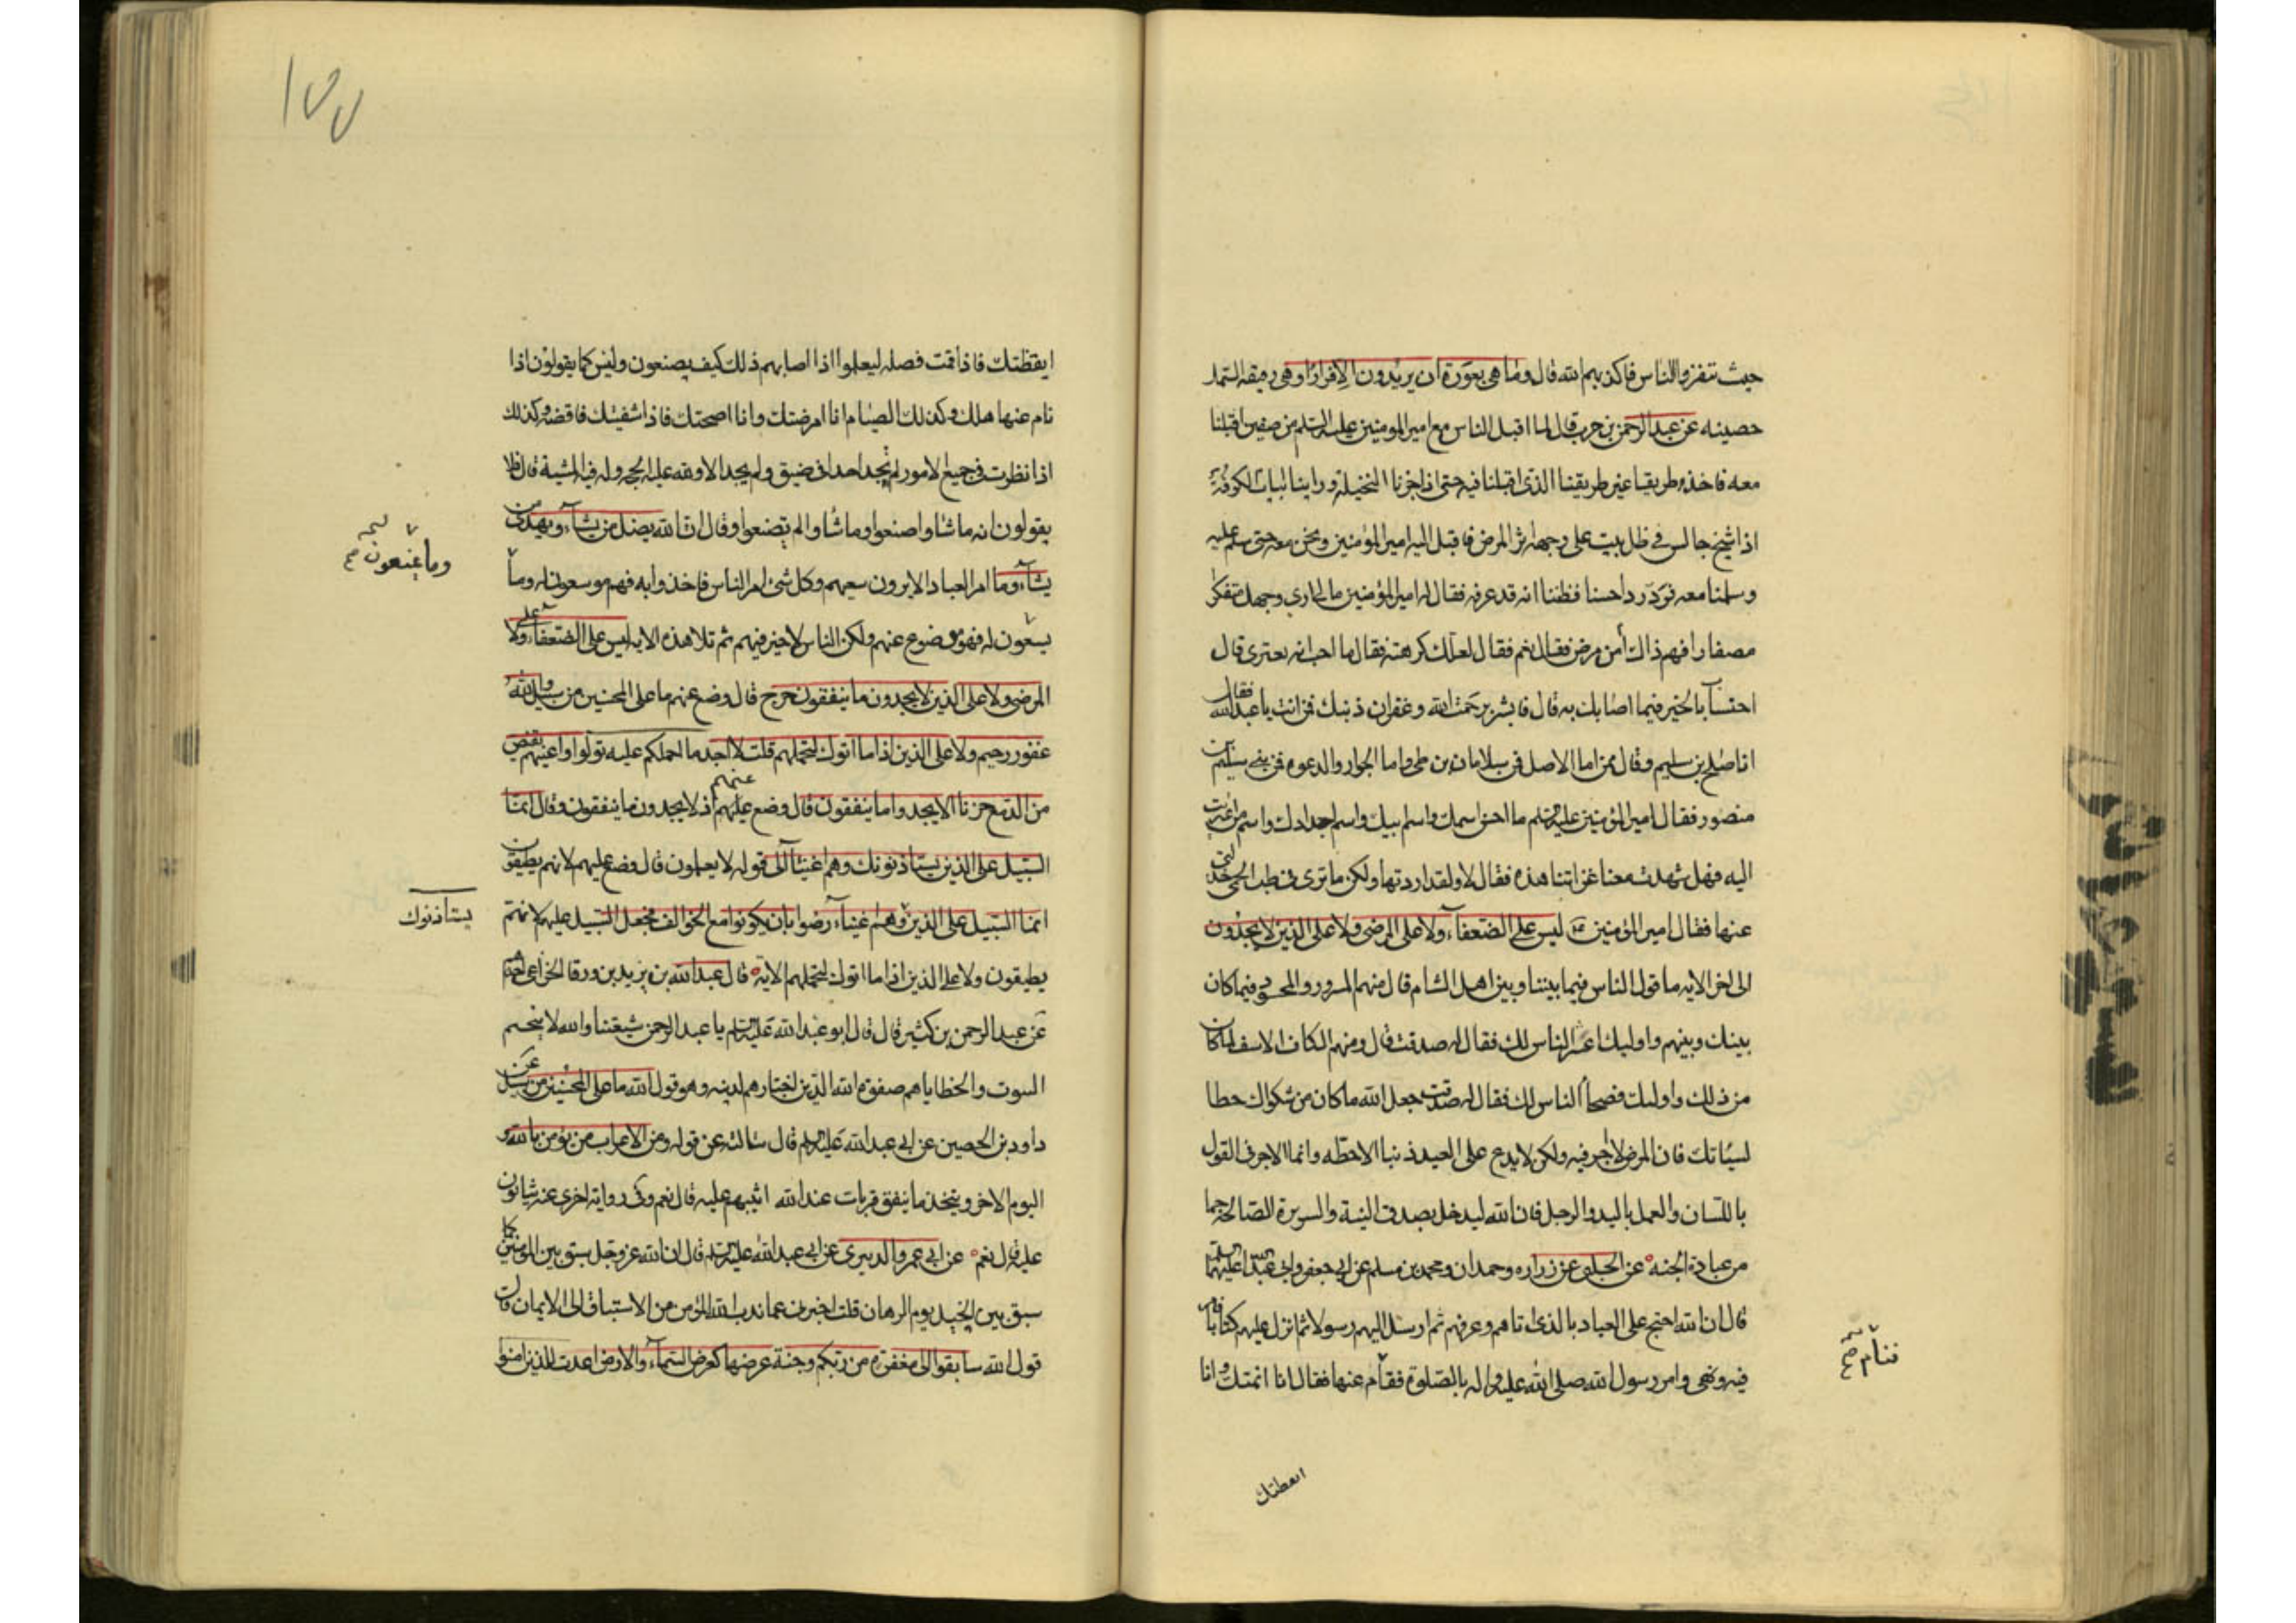 حيث تنفزوا الناس فاكذبهم الله قال وما هى بعورة ان يريدون الا فرارا وهى رفيقة السما
حصينه عن عبد الرحمن بن حرب قال لما اقبل الناس مع امير المومنين عليه السلم من صفين اقبلنا
معه فاخذ طريقا غير طريقنا الذى اقبلنا فيه حتى اذا جزنا النخيلة وراينا ابيات الكوفة
اذا شيخ جالس فى ظل بيت على وجهه اثر المرض فاقبل اليه امير المؤمنين ونحن معه حتى سلم عليه
وسلمنا معه فرد ردا حسنا فظننا انه قد عرفه فقال له امير المؤمنين مالى ارى وجهك متفكرا
مصفارا فهم ذاك أمن مرض فقال نعم فقال لعلك كرهته فقال ما احب انه يعترى قال
احتسابا بالخير فيما اصابك به قال فابشر برحمت الله وغفران ذنبك فمن انت يا عبد الله فقال
انا صالح بن سليم وقال ممن اما الاصل فمن سلامان بن طى واما الجوار والدعوه فمن بنى سليم بن
منصور فقال امير المؤمنين عليه السلم ما احسن اسمك واسم ابيك واسم اجدادك واسم من اعتزيت
اليه فهل شهدت معنا غزاتنا هذه فقال لا ولقد اردتها ولكن ما ترى فى طب الحمى خذلتنى
عنها فقال امير المؤمنين ع ليس على الضعفاء ولا على المرضى ولا على الذين لا يجدون
الى اخر الايه ما قول الناس فيما بيننا وبين اهل الشام قال منهم المسرور والمحسود فيما كان
بينك وبينهم واوليك اغش الناس لك فقال له صدقت قال ومنهم الكاف الاسف لما كان
من ذلك واوليك فصحأ الناس لك فقال له صدقت جعل الله ما كان من شكواك حطا
لسيئاتك فان المرض لا اجر فيه ولكن لا يدع على العبد ذنبا الا حطه وانما الاجر فى القول
باللسان والعمل باليد والرجل فان الله ليدخل بصدق النية والسريرة الصالحة جما
من عباده الجنه عن الحلبى عن زراره وحمدان ومحمد بن مسلم عن ابى جعفر وابى عبد الله عليهما السلم
قال ان الله احتج على العباد بالذى اتاهم وعرفهم ثم ارسل اليهم رسولا ثم انزل عليهم كتابا فامر
فيه ونهى وامر رسول الله صلى الله عليه واله بالصلوة فقام عنها فقال انا انمتك وانا
فنام صح
ايقظتك
١٥٥
ايقظتك فاذا قمت فصله ليعلموا اذا اصابهم ذلك كيف يصنعون وليس كما يقولون اذا
نام عنها هلك وكذلك الصيام انا امرضتك وانا اصححتك فاذا شفيتك فاقضه وكذلك
اذا نظرت فى جميع الامور لم تجد احدا فى ضيق ولم يجد الا ولله عليه الحجه وله فيه المشية قال فلا
يقولون انه ما شاوا صنعوا وما شاوا لم يصنعوا وقال ان الله يضل من يشاء ويهدى من
يشاء وما امر العباد الا بدون سعيهم وكل شئ امر الناس فاخذوا به فهم موسعون له وما
يسعون له فهو موضوع عنهم ولكن الناس لا خير فيهم ثم تلا هذه الايه ليس على الضعفاء ولا على
المرضى ولا على الذين لا يجدون ما ينفقون حرج قال وضع عنهم ما على المحسنين من سبيل والله
غفور رحيم ولا على الذين اذا ما اتوك لتحملهم قلت لا اجد ما احملكم عليه تولوا واعينهم تفيض
من الدمع حزنا الا يجدوا ما ينفقون قال وضع عليهم عنهم اذ لا يجدون ما ينفقون وقال انما
السبيل على الذين يستاذنونك وهم اغنيآ الى قوله لا يعلمون قال وضع عليهم لانهم يطيقون
انما السبيل على الذين وهم اغنياء رضوا بان يكونوا مع الخوالف فجعل السبيل عليهم لانهم
يطيقون ولا على الذين اذا ما اتوك لتحملهم الاية قال عبد الله بن يزيد بن ورقا الخزاعى احدهم
عن عبد الرحمن بن كثير قال قال ابو عبد الله عليه السلم يا عبد الرحمن شيعتنا والله لا يتختم
السوت والخطايا هم صفوة الله الذين اختارهم لدينه وهو قول الله ما على المحسنين من سبيل عن
داود بن الحصين عن ابى عبد الله عليه السلم قال سالته عن قوله ومن الاعراب من يؤمن بالله و
اليوم الاخر ويتخذ ما ينفق قربات عند الله اثيبهم عليه قال نعم وفى رواية اخرى عنه يثابون
عليه قال نعم عن ابى عمرو الزبيرى عن ابى عبد الله عليه السلم قال ان الله عز وجل سبق بين المؤمنين كما
سبق بين الخيل يوم الرهان قلت اخبرنى عما ندب الله المؤمن من الاستباق الى الايمان قال
قول الله سابقوا الى مغفرة من ربكم وجنة عرضها كعرض السماء والارض اعدت للذين امنوا
وما يمنعون صح
يستاذنوك